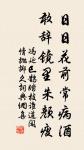 日日花前常病酒
敢辞镜里朱颜瘦
冯延巳鹊踏枝谁道闲
情抛掷久词典网喜